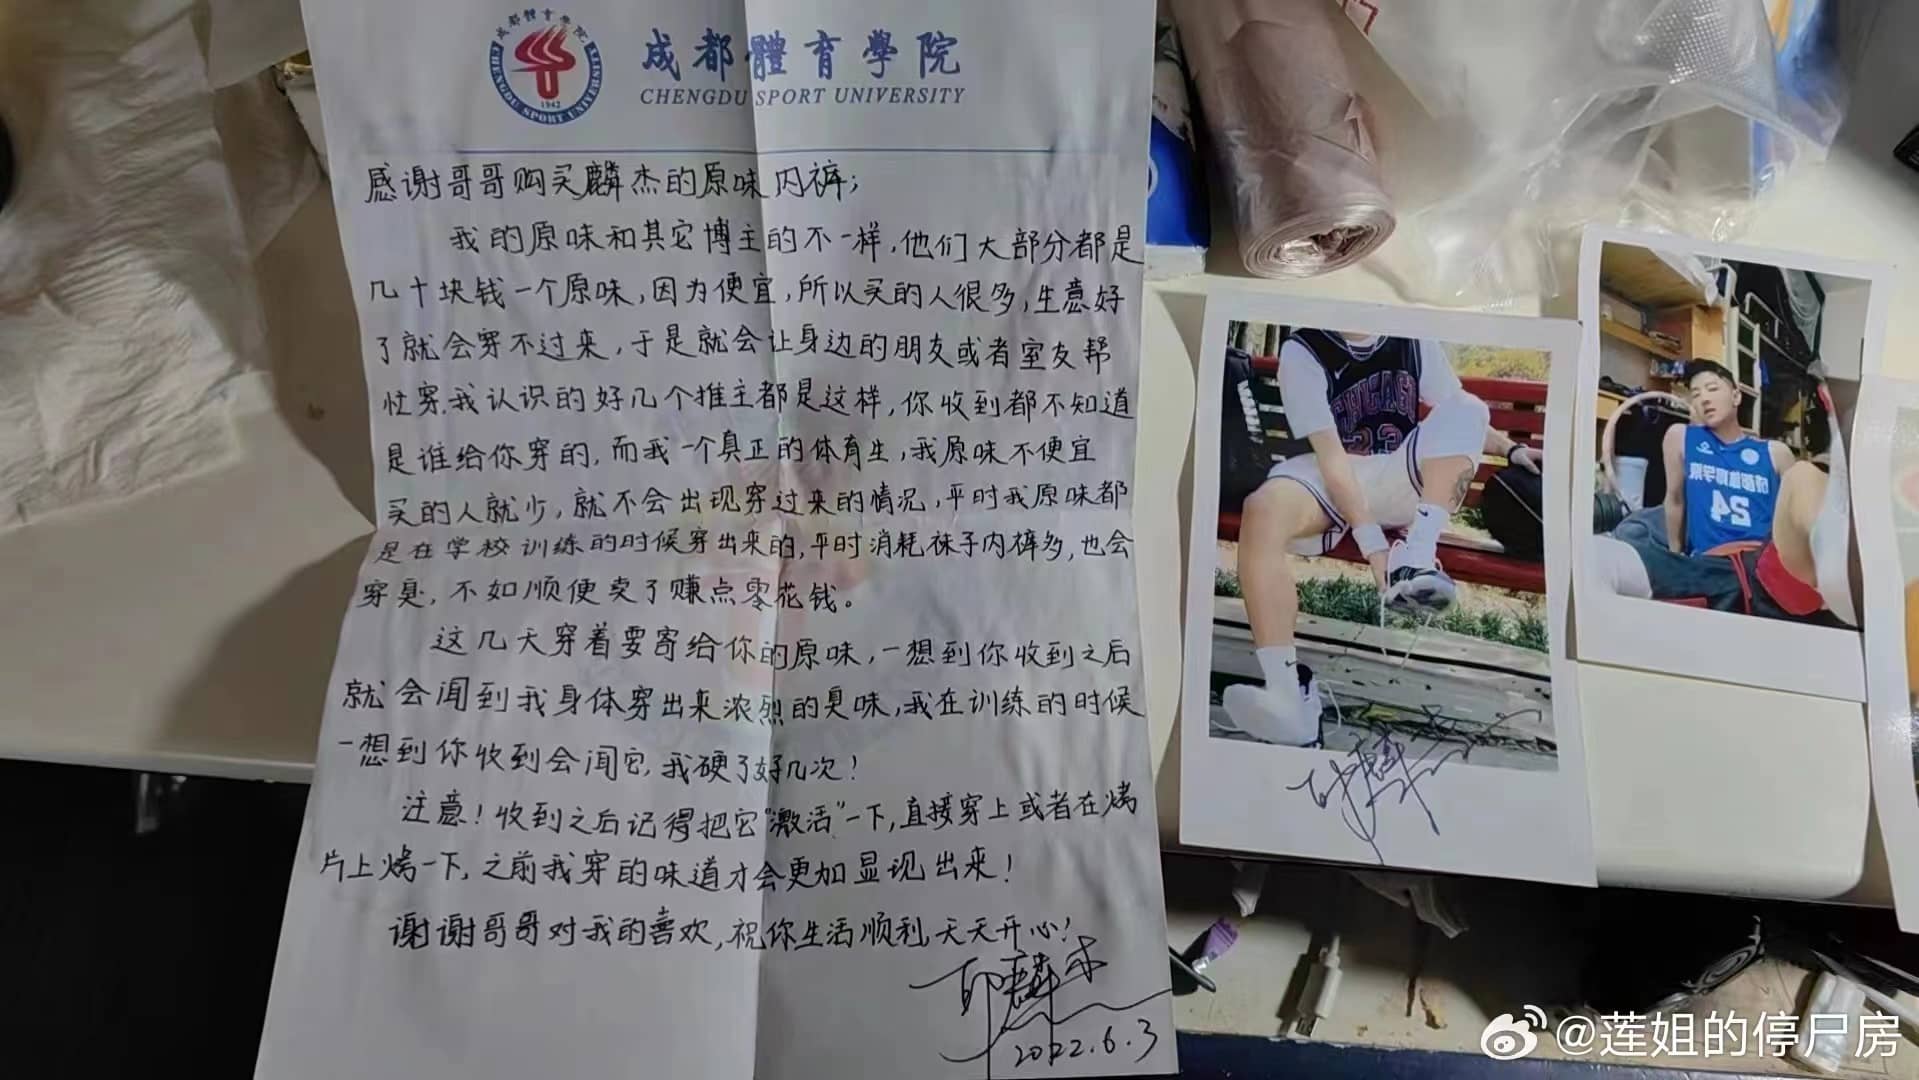 成都體育學院
CHENGDU SPORT UNIVERSITY
成都體育學院
CHENGDU SPORT UNIVERSITY
1942
感谢哥哥购买麟杰的原味内裤;
我的原味和其它博主的不一样,他们大部分都是
几十块钱一个原味,因为便宜,所以买的人很多,生意好
了就会穿不过来,于是就会让身边的朋友或者室友帮
忙穿.我认识的好几个推主都是这样,你收到都不知道
是谁给你穿的,而我一个真正的体育生,我原味不便宜
买的人就少,就不会出现穿过来的情况,平时我原味都
是在学校训练的时候穿出来的,平时消耗袜子内裤多,也会
穿臭,不如顺便卖了赚点零花钱。
这几天穿着要寄给你的原味,一想到你收到之后
就会闻到我身体穿出来浓烈的臭味,我在训练的时候
一想到你收到会闻它,我硬了好几次!
注意!收到之后记得把它“激活”一下,直接穿上或者在烤
片上烤一下,之前我穿的味道才会更加显现出来!
谢谢哥哥对我的喜欢,祝你生活顺利天天开心!
2022.6.3
CHICAGO
23
成都体育学院
24
@莲姐的停尸房